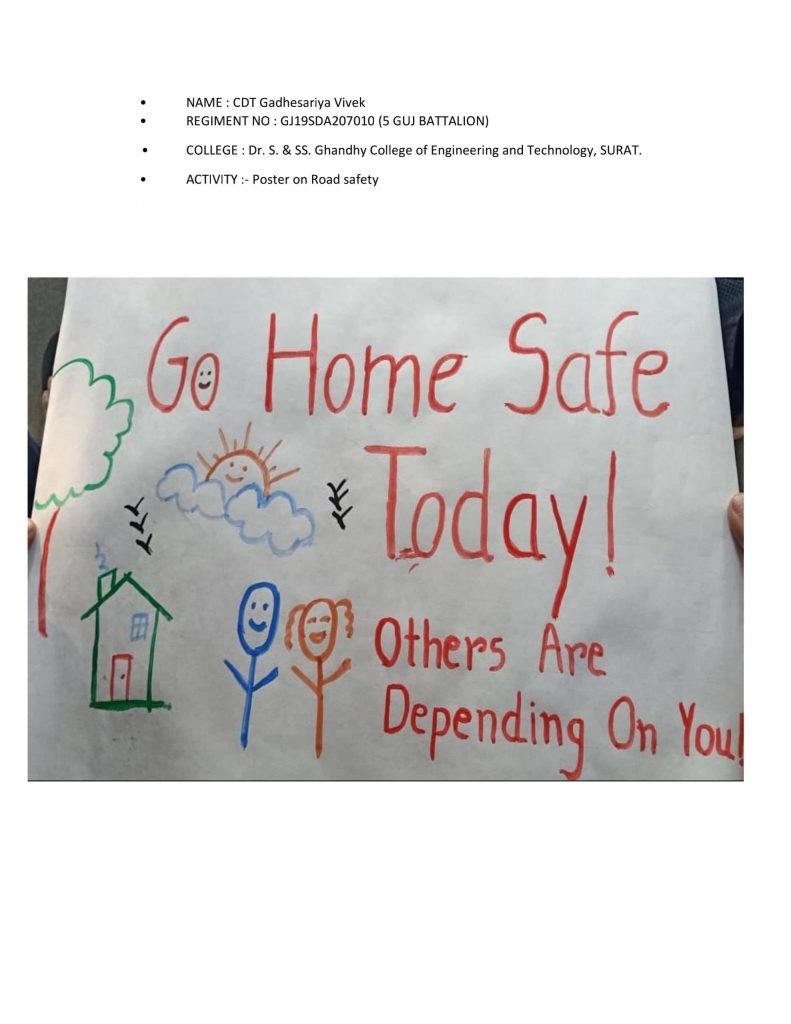 • NAME : CDT Gadhesariya Vivek
• REGIMENT NO : GJ19SDA207010 (5 GUJ BATTALION)
• COLLEGE : Dr. S. & SS. Ghandhy College of Engineering and Technology, SURAT.
• ACTIVITY :- Poster on Road safety
Go Home Safe
Today!
Others Are
Depending On You!